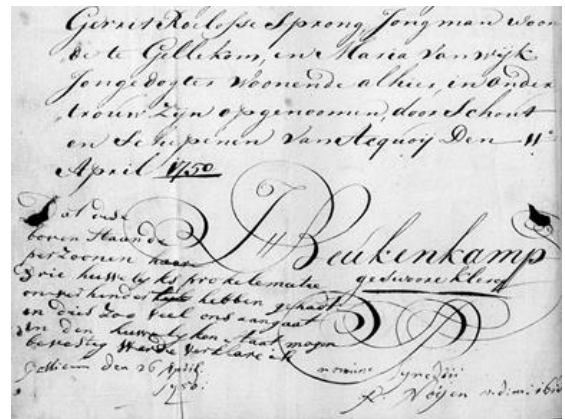 Gerret Roelofse Sprong, Jong man woon
de te Gellekom, en Maria van wijk
Jongedogter woonende alhier, in onder
trouw zijn opgenoomen, door Schout
en Schepenen van Acquoij Den 11e
April 1750
JH Beukenkamp
geswoore Klerq
Dat dese
boven staande
perzoonen haare
drie huwelijks proklematie
onverhindert hebben gehadt
en dies zoo veel ons aangaat
in den huwelyken staat mogen
bevestig werde verklare ik
den 26 April
1750:
nomine Synedrii